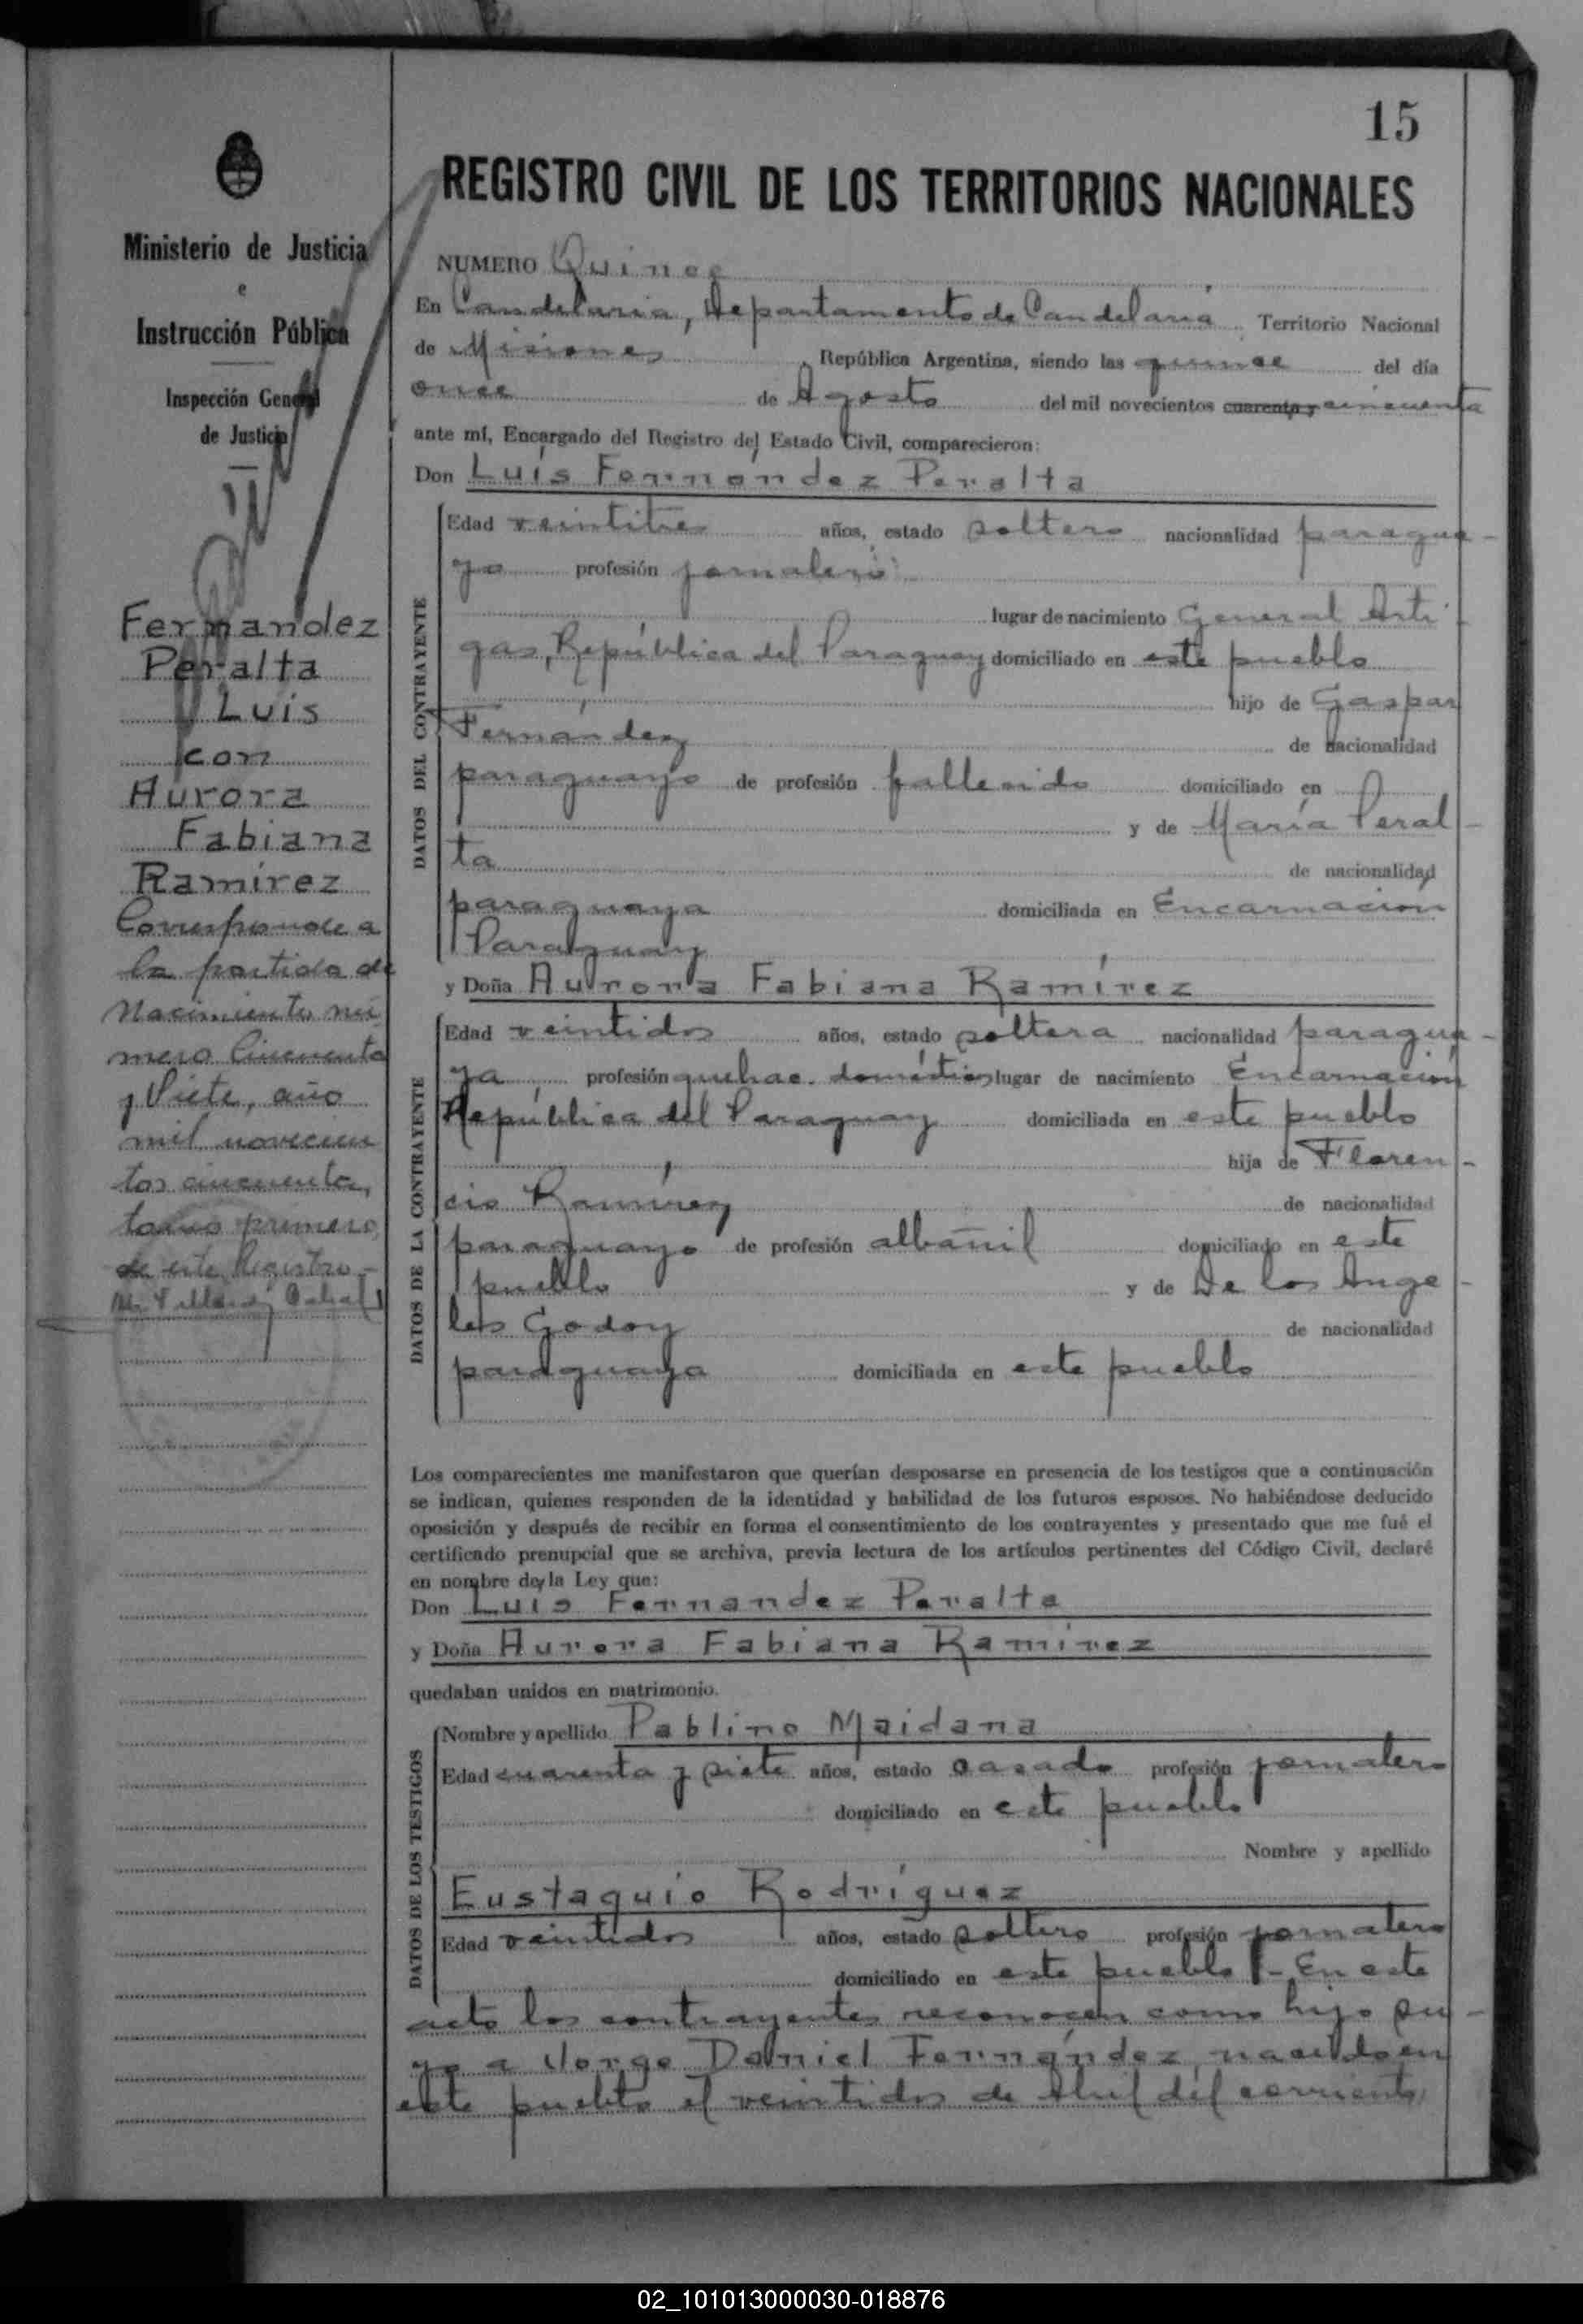 15
REGISTRO CIVIL DE LOS TERRITORIOS NACIONALES
Ministerio de Justicia
e
Instrucción Pública
Inspección General
de Justicia
Fernandez
Peralta
Luis
con
Aurora
Fabiana
Ramírez
Corresponde a
la partida de
Nacimiento nú
mero Cincuenta
y Siete, año
mil novecien
tos cincuenta,
tomo primero
de este Registro.-
NUMERO Quince
En Candelaria, Departamento de Candelaria Territorio Nacional
de Misiones, República Argentina, siendo las quince del día
once de Agosto del mil novecientos cuarenta y cincuenta
ante mí, Encargado del Registro del Estado Civil, comparecieron:
Don Luis Fernández Peralta
DATOS DEL CONTRAYENTE
Edad veintitres años, estado soltero nacionalidad paragua-
yo profesión jornalero
lugar de nacimiento General Arti-
gas, República del Paraguay domiciliado en este pueblo
hijo de Gaspar
Fernández de nacionalidad
paraguayo de profesión fallecido domiciliado en
y de María Peral-
ta de nacionalidad
paraguaya domiciliada en Encarnación
Paraguay
y Doña Aurora Fabiana Ramírez
DATOS DE LA CONTRAYENTE
Edad veintidos años, estado soltera nacionalidad paragua-
ya profesión quehac. domésticos lugar de nacimiento Encarnación
República del Paraguay domiciliada en este pueblo
hija de Floren-
cio Ramírez de nacionalidad
paraguayo de profesión albañil domiciliado en este
pueblo y de De los Ange-
les Godoy de nacionalidad
paraguaya domiciliada en este pueblo
Los comparecientes me manifestaron que querían desposarse en presencia de los testigos que a continuación
se indican, quienes responden de la identidad y habilidad de los futuros esposos. No habiéndose deducido
oposición y después de recibir en forma el consentimiento de los contrayentes y presentado que me fué el
certificado prenupcial que se archiva, previa lectura de los artículos pertinentes del Código Civil, declaré
en nombre de la Ley que:
Don Luis Fernandez Peralta
y Doña Aurora Fabiana Ramírez
quedaban unidos en matrimonio.
DATOS DE LOS TESTIGOS
Nombre y apellido Pablino Maidana
Edad cuarenta y siete años, estado casado profesión jornalero
domiciliado en este pueblo
Nombre y apellido
Eustaquio Rodríguez
Edad veintidos años, estado soltero profesión jornalero
domiciliado en este pueblo.- En este
acto los contrayentes reconocen como hijo su-
yo a Jorge Daniel Fernández, nacido en
este pueblo el veintidos de Abril del corriente
02_101013000030-018876